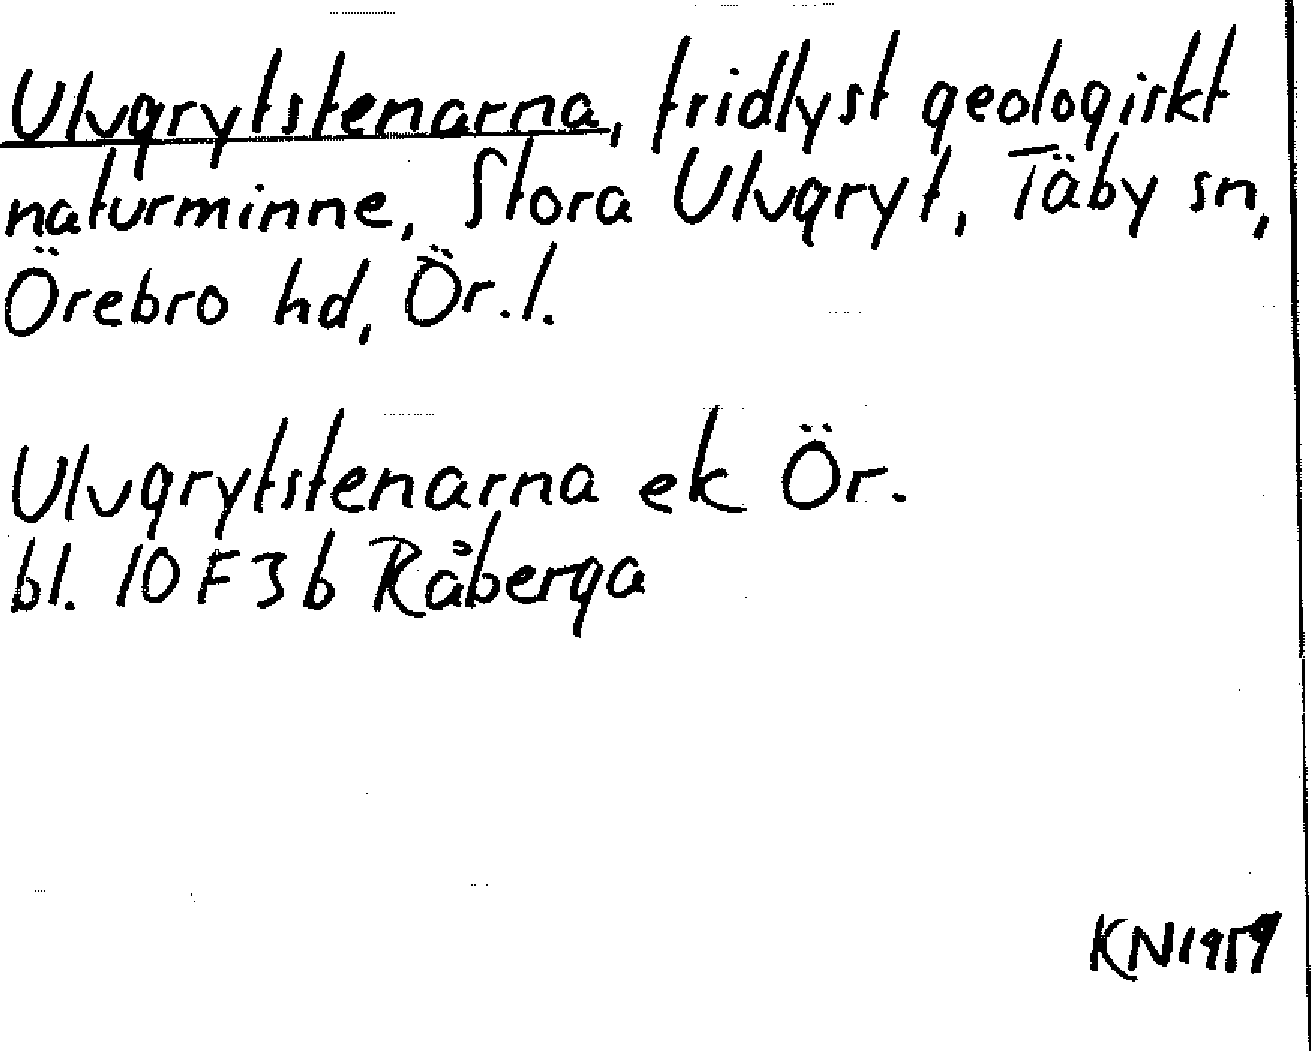 Ulvgrytstenarna, fridlyst geologiskt
naturminne, Stora Ulvgryt, Täby sn,
Örebro hd, Ör.l.
Ulvgrytstenarna ek Ör.
bl. 10 F 3 b Råberga
KN 1959